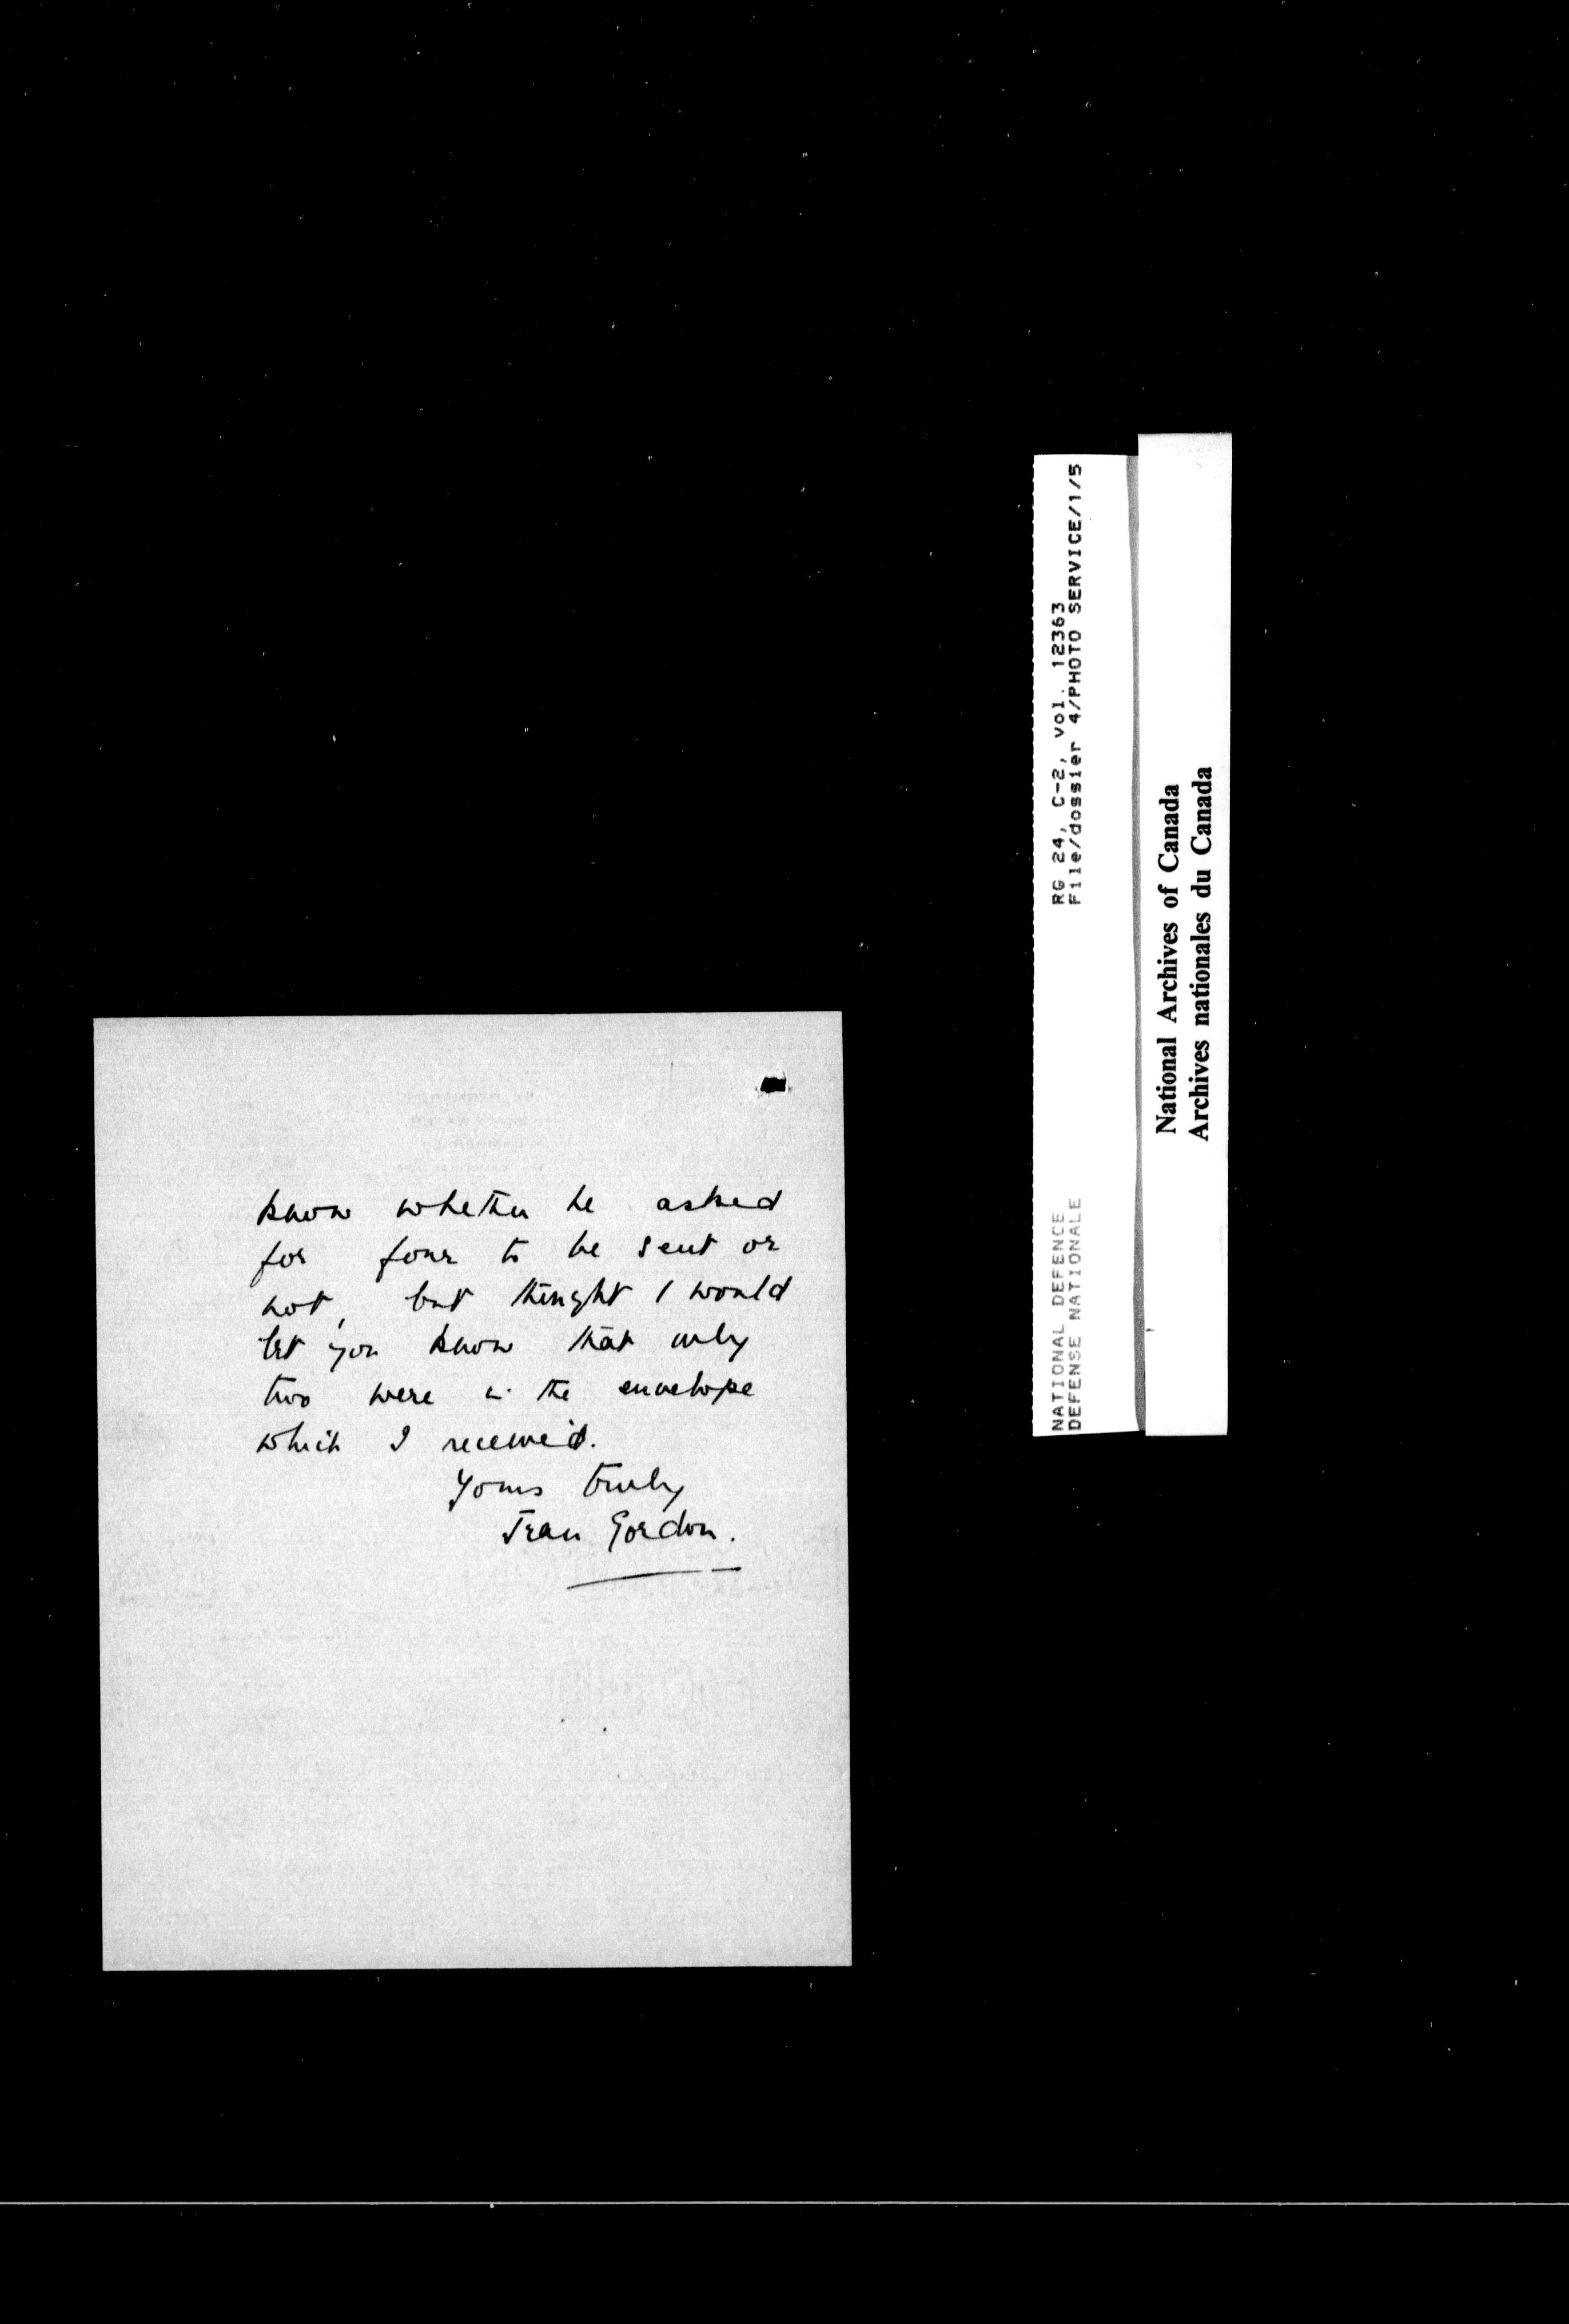 know whether he asked
for four to be sent or
not, but thought I would
let you know that only
two were in the envelope
which I received.
Yours truly
Jean Gordon.
RG 24, C-2, vol. 12363
File/dossier 4/PHOTO SERVICE/1/5
NATIONAL DEFENCE
DEFENSE NATIONALE
National Archives of Canada
Archives nationales du Canada